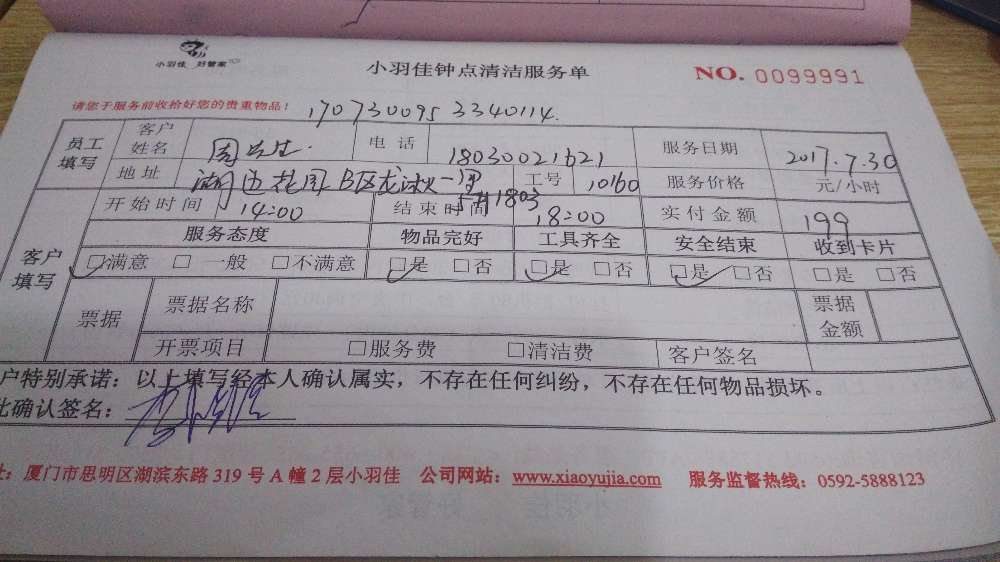 小羽佳 好管家
小羽佳钟点清洁服务单 NO. 0099991
请您于服务前收拾好您的贵重物品! 1707300953340114.
员工填写 客户姓名 周先生. 电话 18030021621 服务日期 2017.7.30
地址 湖边花园B区 1803 工号 10160 服务价格 元/小时
开始时间 14:00 结束时间 18:00 实付金额 199
客户填写 服务态度 物品完好 工具齐全 安全结束 收到卡片
☑满意 □一般 □不满意 ☑是 □否 ☑是 □否 ☑是 □否 □是 □否
票据 票据名称 票据金额
开票项目 □服务费 □清洁费 客户签名
户特别承诺:以上填写经本人确认属实,不存在任何纠纷,不存在任何物品损坏。
此确认签名:
址:厦门市思明区湖滨东路 319 号 A 幢 2 层小羽佳 公司网站:www.xiaoyujia.com 服务监督热线:0592-5888123